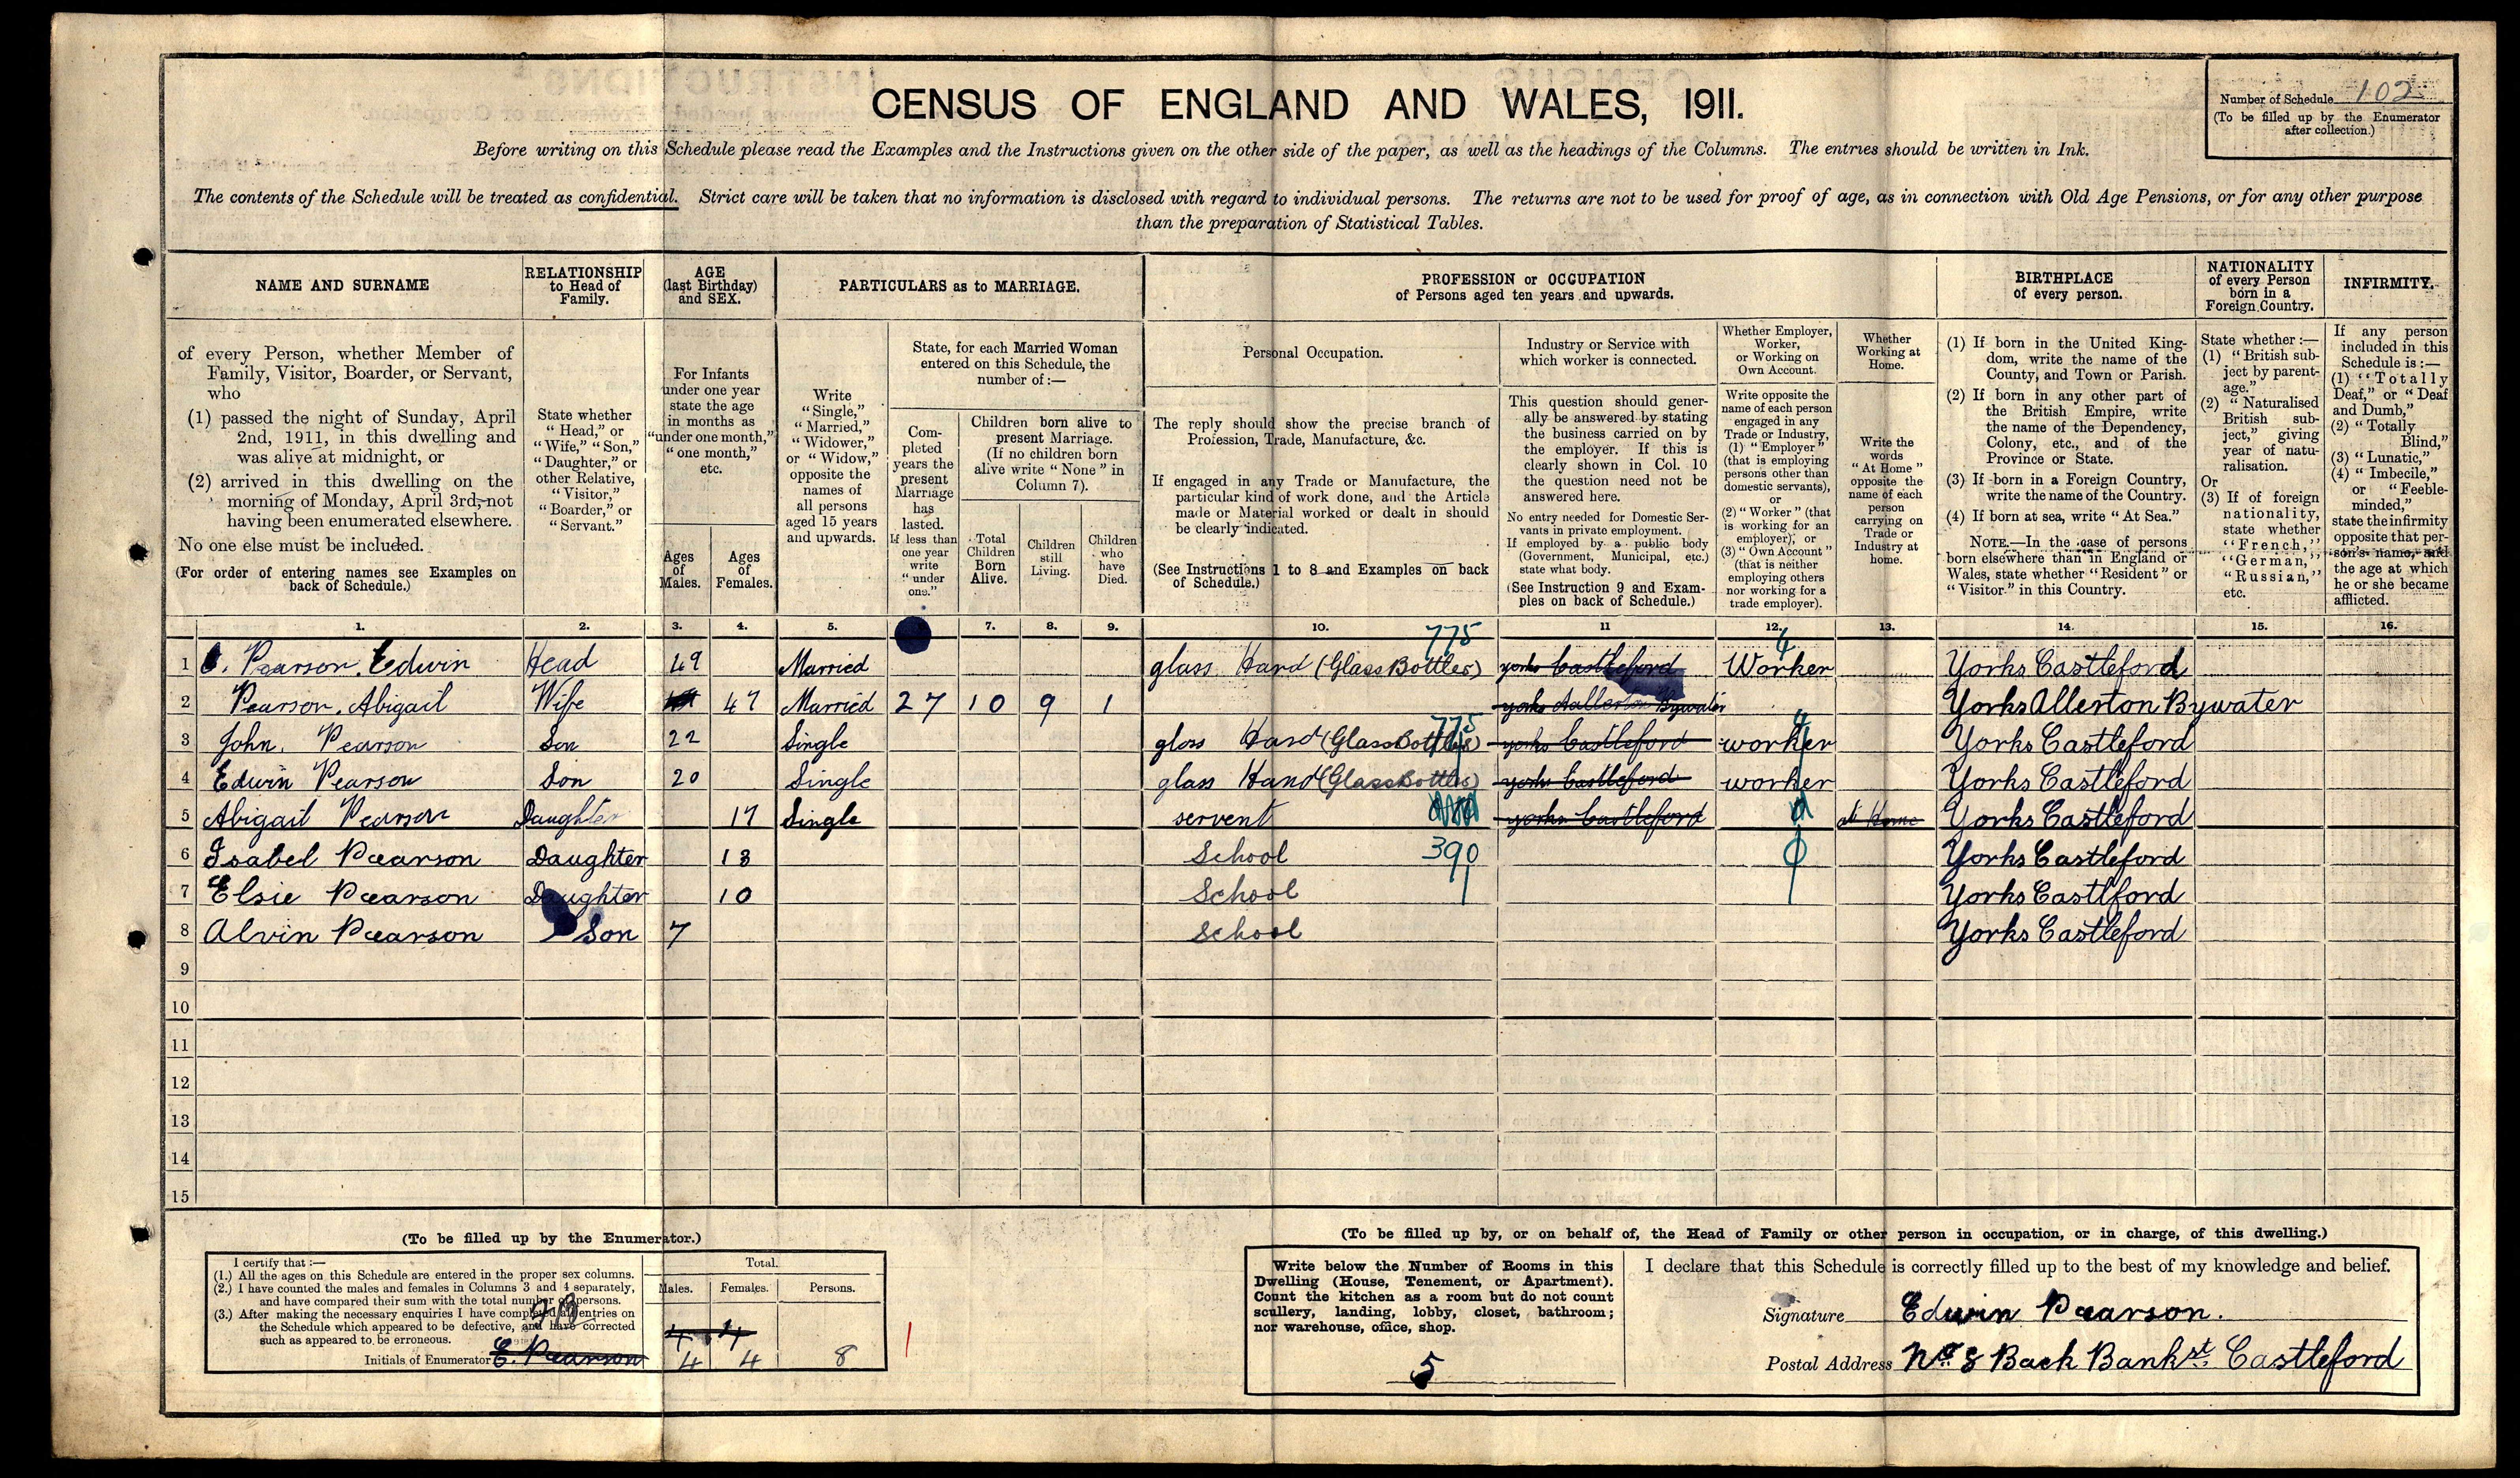 CENSUS OF ENGLAND AND WALES, 1911.
Number of Schedule 102
(To be filled up by the Enumerator
after collection.)
Before writing on this Schedule please read the Examples and the Instructions given on the other side of the paper, as well as the headings of the Columns. The entries should be written in Ink.
The contents of the Schedule will be treated as confidential. Strict care will be taken that no information is disclosed with regard to individual persons. The returns are not to be used for proof of age, as in connection with Old Age Pensions, or for any other purpose
than the preparation of Statistical Tables.
NAME AND SURNAME
of every Person, whether Member of
Family, Visitor, Boarder, or Servant,
who
(1) passed the night of Sunday, April
2nd, 1911, in this dwelling and
was alive at midnight, or
(2) arrived in this dwelling on the
morning of Monday, April 3rd, not
having been enumerated elsewhere.
No one else must be included.
(For order of entering names see Examples on
back of Schedule.)
RELATIONSHIP
to Head of
Family.
State whether
"Head," or
"Wife," "Son,"
"Daughter," or
other Relative,
"Visitor,"
"Boarder," or
"Servant."
AGE
(last Birthday)
and SEX.
For Infants
under one year
state the age
in months as
"under one month,"
"one month,"
etc.
Ages
of
Males.
Ages
of
Females.
PARTICULARS as to MARRIAGE.
Write
"Single,"
"Married,"
"Widower,"
or "Widow,"
opposite the
names of
all persons
aged 15 years
and upwards.
State, for each Married Woman
entered on this Schedule, the
number of:—
Com-
pleted
years the
present
Marriage
has
lasted.
If less than
one year
write
"under
one."
Children born alive to
present Marriage.
(If no children born
alive write "None" in
Column 7).
Total
Children
Born
Alive.
Children
still
Living.
Children
who
have
Died.
PROFESSION or OCCUPATION
of Persons aged ten years and upwards.
Personal Occupation.
The reply should show the precise branch of
Profession, Trade, Manufacture, &c.
If engaged in any Trade or Manufacture, the
particular kind of work done, and the Article
made or Material worked or dealt in should
be clearly indicated.
(See Instructions 1 to 8 and Examples on back
of Schedule.)
Industry or Service with
which worker is connected.
This question should gener-
ally be answered by stating
the business carried on by
the employer. If this is
clearly shown in Col. 10
the question need not be
answered here.
No entry needed for Domestic Ser-
vants in private employment.
If employed by a public body
(Government, Municipal, etc.)
state what body.
(See Instruction 9 and Exam-
ples on back of Schedule.)
Whether Employer,
Worker,
or Working on
Own Account.
Write opposite the
name of each person
engaged in any
Trade or Industry,
(1) "Employer"
(that is employing
persons other than
domestic servants),
or
(2) "Worker" (that
is working for an
employer), or
(3) "Own Account"
(that is neither
employing others
nor working for a
trade employer).
Whether
Working at
Home.
Write the
words
"At Home"
opposite the
name of each
person
carrying on
Trade or
Industry at
home.
BIRTHPLACE
of every person.
(1) If born in the United King-
dom, write the name of the
County, and Town or Parish.
(2) If born in any other part of
the British Empire, write
the name of the Dependency,
Colony, etc., and of the
Province or State.
(3) If born in a Foreign Country,
write the name of the Country.
(4) If born at sea, write "At Sea."
NOTE.—In the case of persons
born elsewhere than in England or
Wales, state whether "Resident" or
"Visitor" in this Country.
NATIONALITY
of every Person
born in a
Foreign Country.
State whether:—
(1) "British sub-
ject by parent-
age."
(2) "Naturalised
British sub-
ject," giving
year of natu-
ralisation.
Or
(3) If of foreign
nationality,
state whether
"French,"
"German,"
"Russian,"
etc.
INFIRMITY.
If any person
included in this
Schedule is:—
(1) "Totally
Deaf," or "Deaf
and Dumb,"
(2) "Totally
Blind,"
(3) "Lunatic,"
(4) "Imbecile,"
or "Feeble-
minded,"
state the infirmity
opposite that per-
son's name, and
the age at which
he or she became
afflicted.
1. 2. 3. 4. 5. 7. 8. 9. 10. 11 12. 13. 14. 15. 16.
775 4
1 Pearson. Edwin Head 49 Married glass Hand (Glass Bottles) yorks Castleford Worker Yorks Castleford
2 Pearson. Abigail Wife 47 Married 27 10 9 1 yorks Aallerton Bywater Yorks Allerton Bywater
775 4
3 John. Pearson Son 22 Single glass Hand (Glass Bottles) yorks Castleford worker Yorks Castleford
4 Edwin Pearson Son 20 Single glass Hand (Glass Bottles) yorks Castleford worker Yorks Castleford
5 Abigail Pearson Daughter 17 Single servent yorks Castleford at Home Yorks Castleford
6 Isabel Pearson Daughter 13 School 390 0 Yorks Castleford
7 Elsie Pearson Daughter 10 School Yorks Castlford
8 Alvin Pearson Son 7 School Yorks Castleford
9
10
11
12
13
14
15
(To be filled up by the Enumerator.)
I certify that:—
(1.) All the ages on this Schedule are entered in the proper sex columns.
(2.) I have counted the males and females in Columns 3 and 4 separately,
and have compared their sum with the total number of persons.
(3.) After making the necessary enquiries I have completed all entries on
the Schedule which appeared to be defective, and have corrected
such as appeared to be erroneous.
Initials of Enumerator E. Pearson
Total.
Males. Females. Persons.
4 4
4 4 8
(To be filled up by, or on behalf of, the Head of Family or other person in occupation, or in charge, of this dwelling.)
Write below the Number of Rooms in this
Dwelling (House, Tenement, or Apartment).
Count the kitchen as a room but do not count
scullery, landing, lobby, closet, bathroom;
nor warehouse, office, shop.
5
I declare that this Schedule is correctly filled up to the best of my knowledge and belief.
Signature Edwin Pearson.
Postal Address No 8 Back Bank st. Castleford